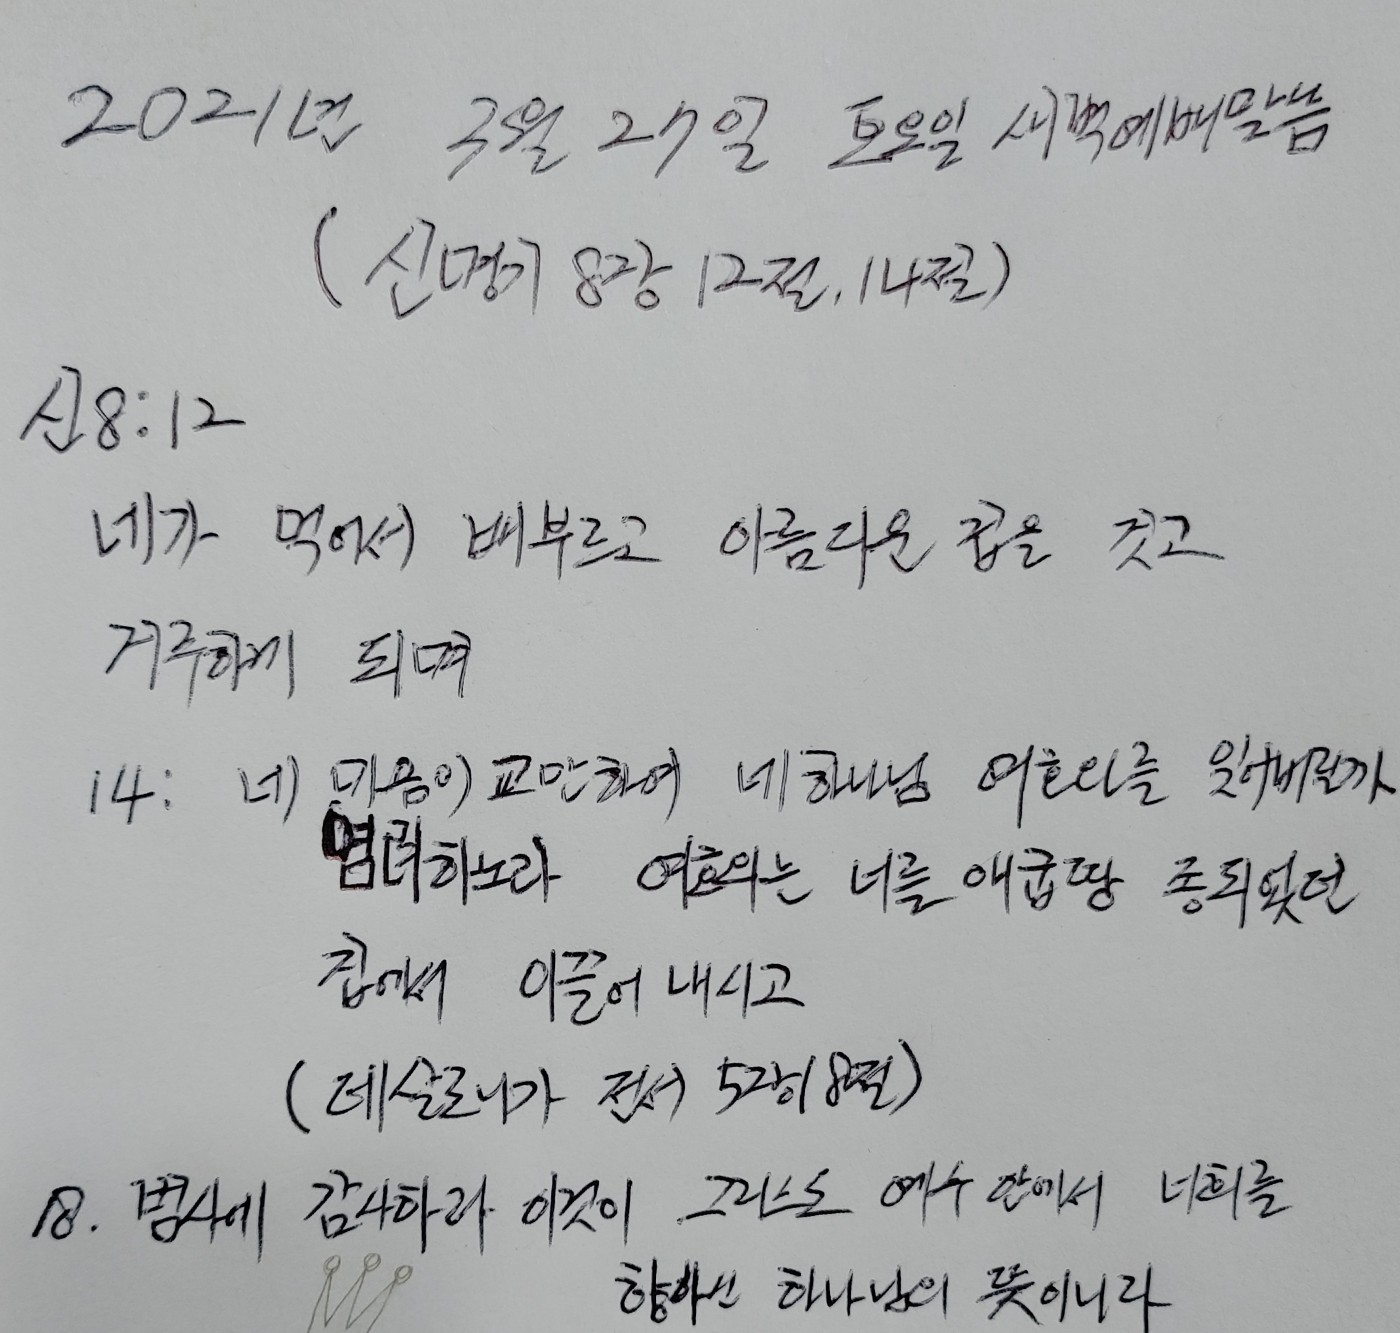 2021년 3월 27일 토요일 새벽예배말씀
(신명기 8장 12절, 14절)
신8:12
네가 먹어서 배부르고 아름다운 집을 짓고
거주하게 되며
14: 네 마음이 교만하여 네 하나님 여호와를 잊어버릴까
염려하노라 여호와는 너를 애굽땅 종되었던
집에서 이끌어 내시고
(데살로니가 전서 5장18절)
18. 범사에 감사하라 이것이 그리스도 예수 안에서 너희를
향하신 하나님의 뜻이니라